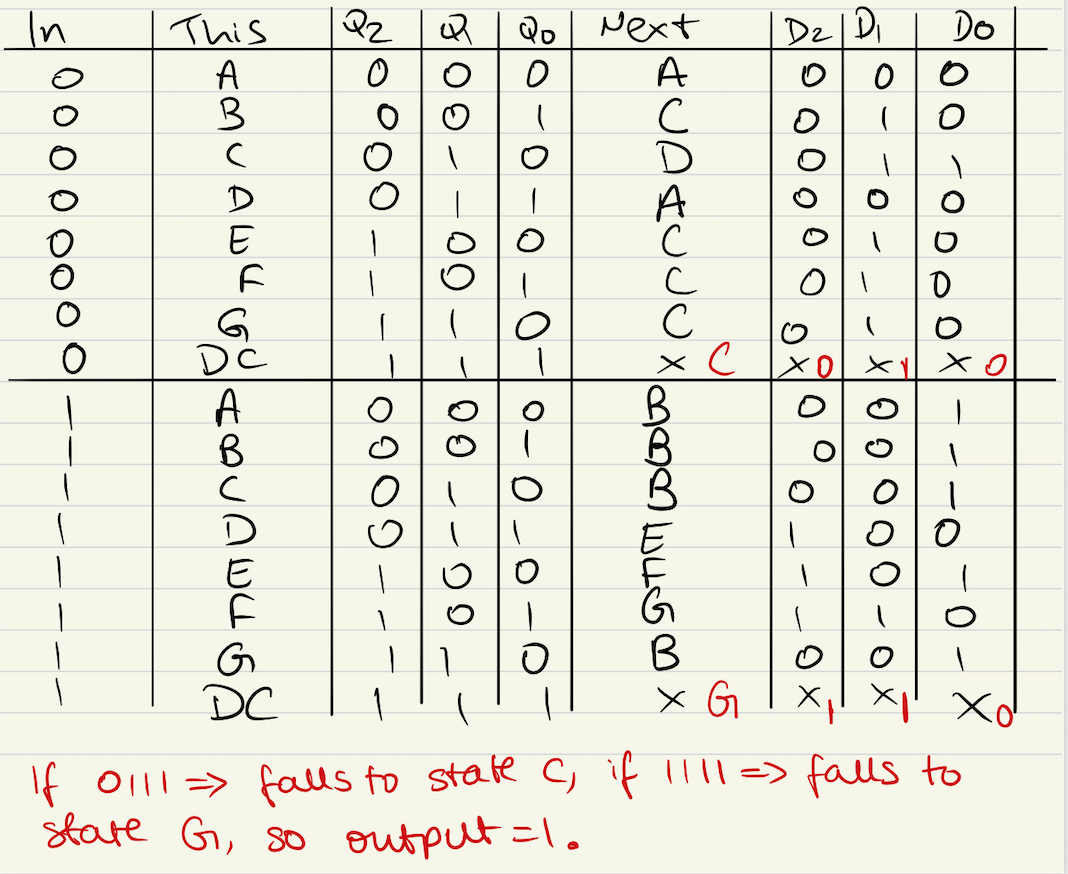 In This Q2 Q1 Q0 Next D2 D1 D0
0 A 0 0 0 A 0 0 0
0 B 0 0 1 C 0 1 0
0 C 0 1 0 D 0 1 1
0 D 0 1 1 A 0 0 0
0 E 1 0 0 C 0 1 0
0 F 1 0 1 C 0 1 0
0 G 1 1 0 C 0 1 0
0 DC 1 1 1 x C x 0 x 1 x 0
1 A 0 0 0 B 0 0 1
1 B 0 0 1 B 0 0 1
1 C 0 1 0 B 0 0 1
1 D 0 1 1 E 1 0 0
1 E 1 0 0 F 1 0 1
1 F 1 0 1 G 1 1 0
1 G 1 1 0 B 0 0 1
1 DC 1 1 1 x G x 1 x 1 x 0
If 0111 => falls to state C, if 1111 => falls to
state G, so output = 1.